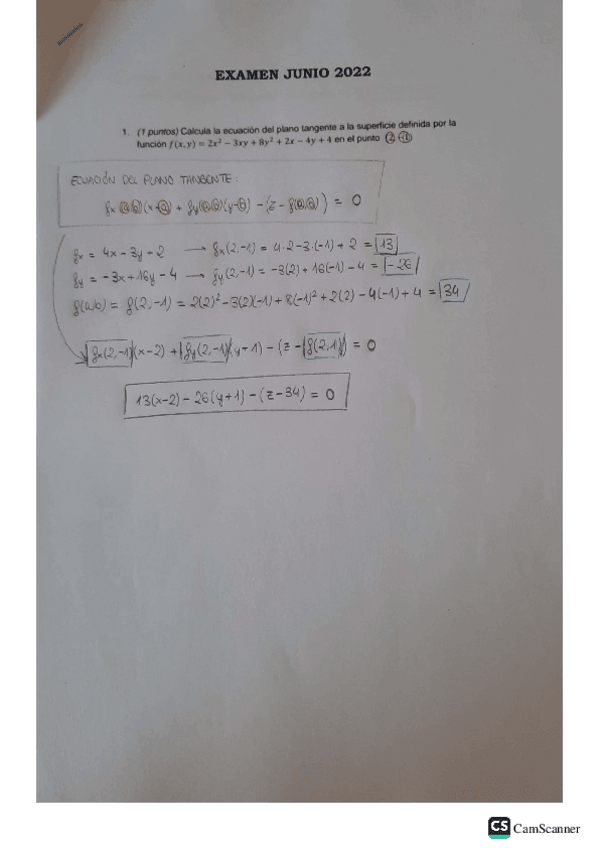 EXAMEN JUNIO 2022
1. (1 puntos) Calcula la ecuación del plano tangente a la superficie definida por la
función f(x,y) = 2x² − 3xy + 8y² + 2x − 4y + 4 en el punto (2,-1)
ECUACIÓN DEL PLANO TANGENTE:
fx(a,b)(x-a) + fy(a,b)(y-b) - (z - f(a,b)) = 0
fx = 4x - 3y - 2 → fx(2,-1) = 4·2-3·(-1)+2 = 13
fy = -3x+16y-4 → fy(2,-1) = -3(2)+16(-1)-4 = -26
f(a,b) = f(2,-1) = 2(2)²-3(2)(-1)+8(-1)²+2(2)-4(-1)+4 = 34
fx(2,-1)(x-2) + fy(2,-1)(y+1) - (z - f(2,1)) = 0
13(x-2) - 26(y+1) - (z-34) = 0
CS CamScanner